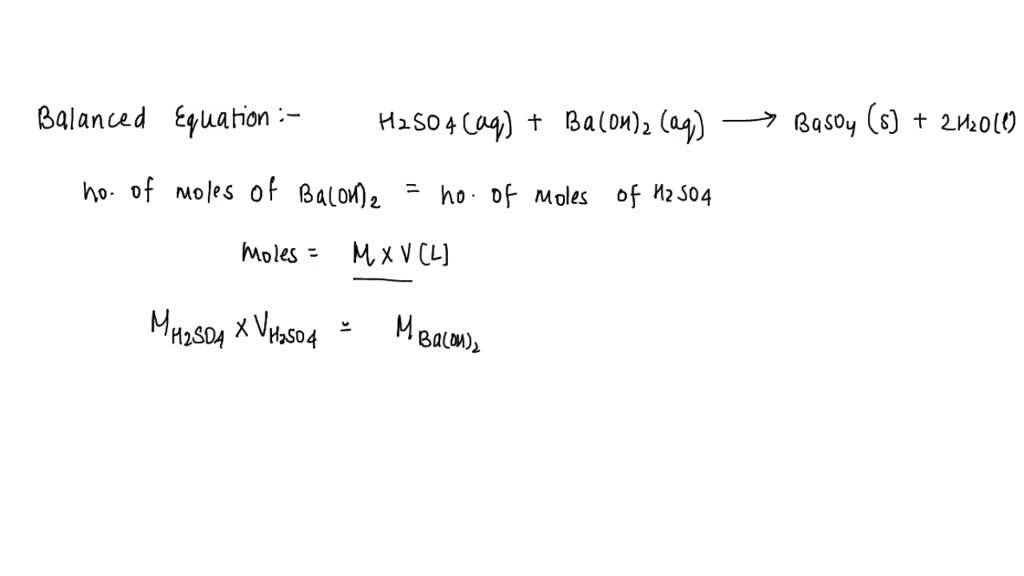 Balanced Equation :- H2SO4(aq) + Ba(OH)2 (aq) ⟶ BaSO4 (s) + 2H2O(l)
no. of moles of Ba(OH)2 = no. of moles of H2SO4
Moles = M x V (L]
M H2SO4 x V H2SO4 = M Ba(OH)2